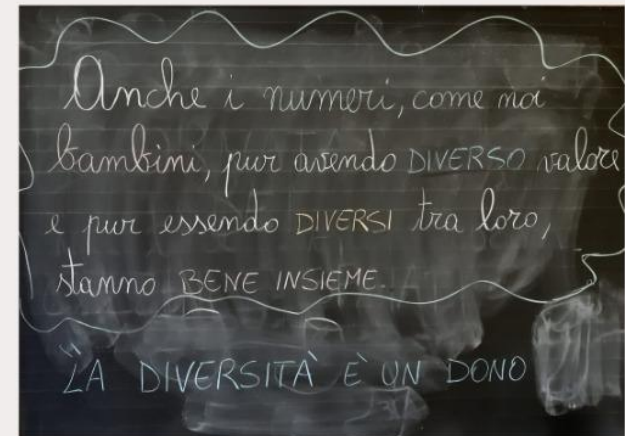 Anche i numeri, come noi
bambini, pur avendo DIVERSO valore
e pur essendo DIVERSI tra loro,
stanno BENE INSIEME.
"LA DIVERSITÀ È UN DONO